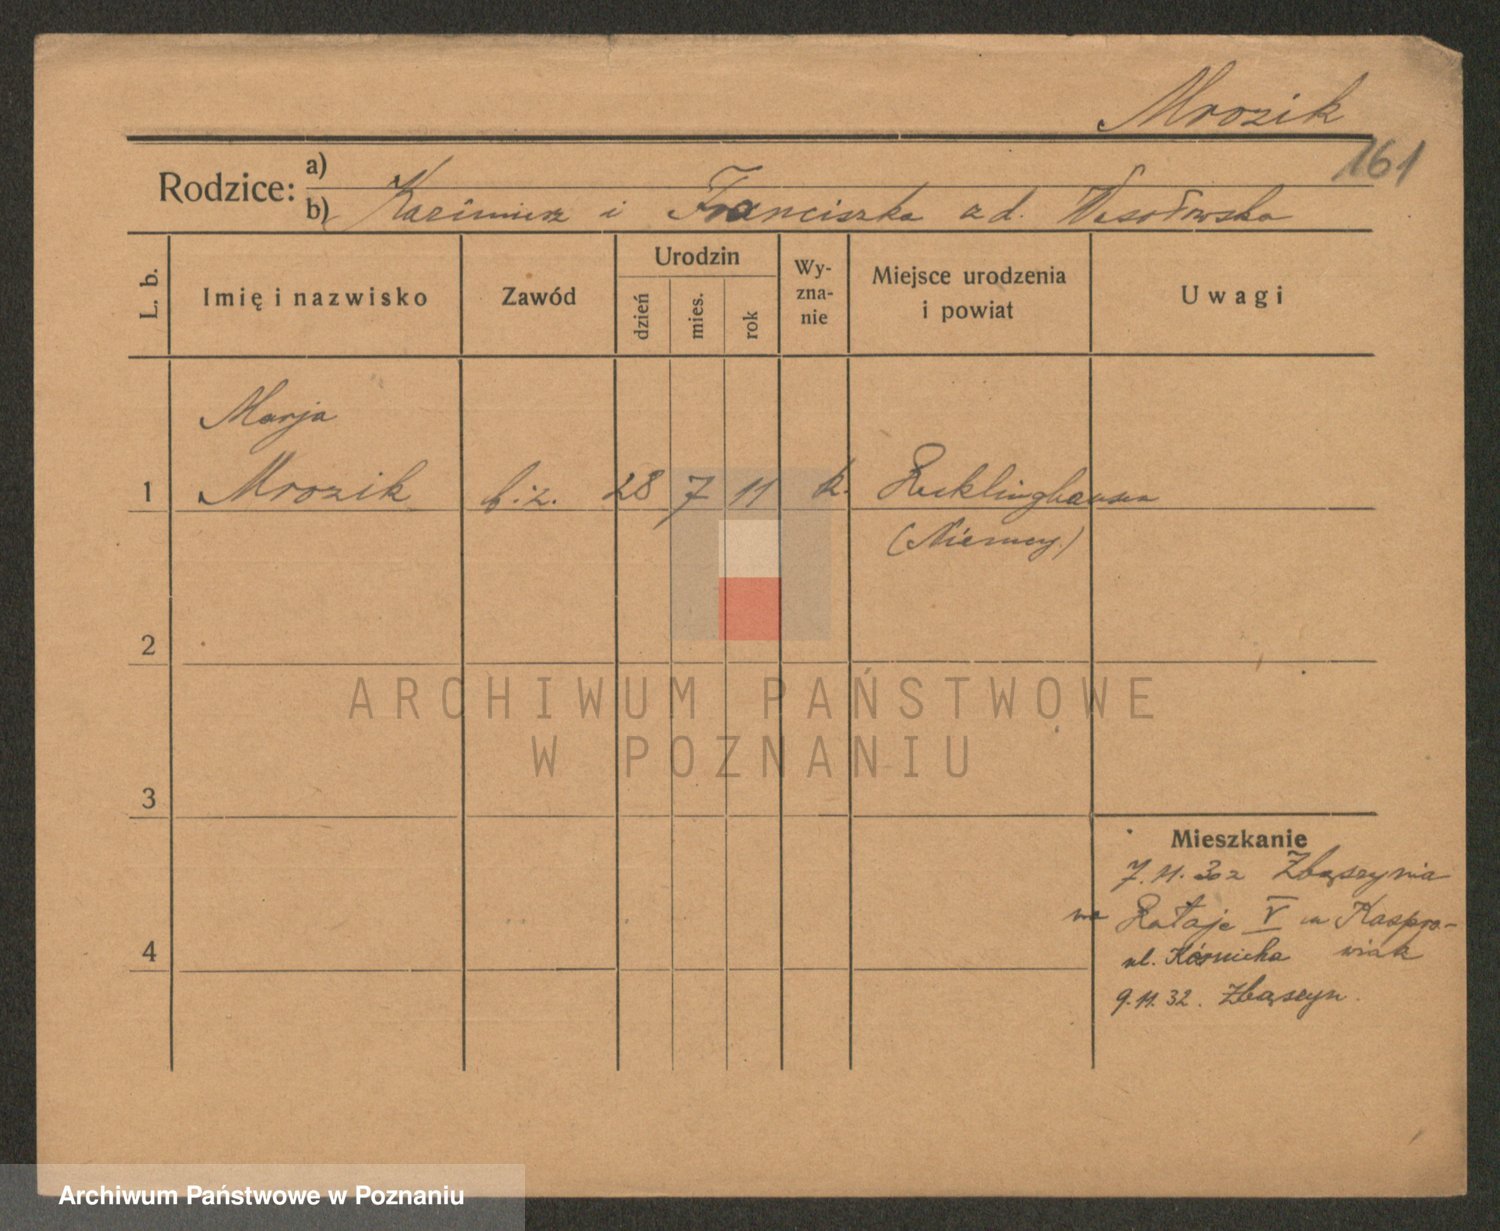 Mrozik
161
Rodzice: a)
b) Kazimierz i Franciszka z d. Wesołowska
L. b.
Imię i nazwisko
Zawód
Urodzin
dzień
mies.
rok
Wy-
zna-
nie
Miejsce urodzenia
i powiat
Uwagi
Marja
1 Mrozik b.z. 28 7 11 k. Recklinghausen
(Niemcy.)
2
ARCHIWUM PAŃSTWOWE
W POZNANIU
3
Mieszkanie
7.11.32 z Zbąszynia
Rataje V u Kaspro-
wiak
ul. Kórnicka
4
9.11.32. Zbąszyn.
Archiwum Państwowe w Poznaniu